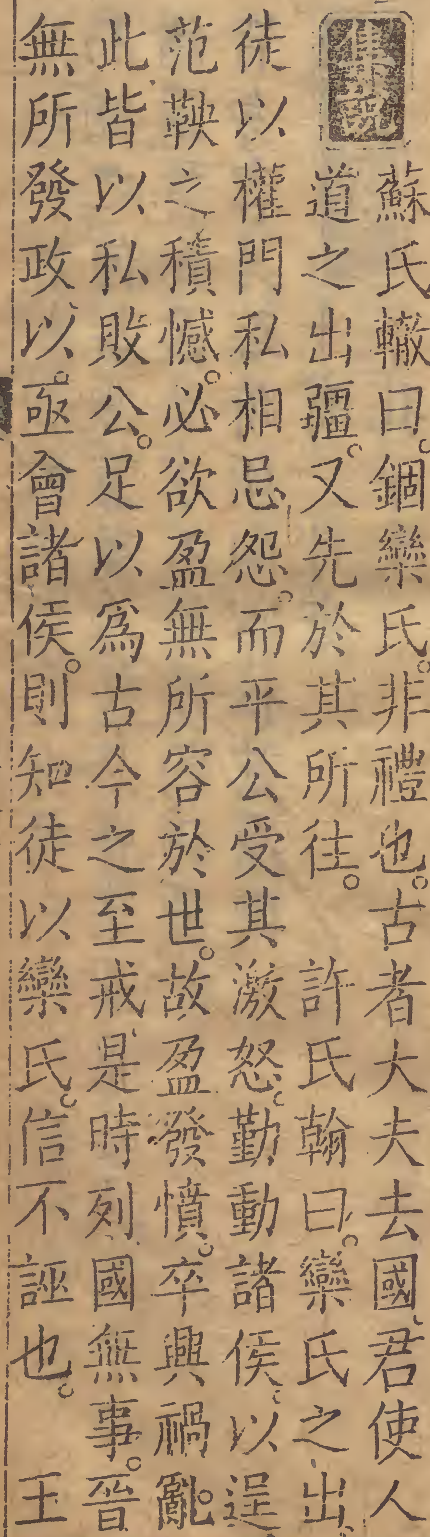 集說
蘇氏轍曰。錮欒氏。非禮也。古者大夫去國、君使人
道之出疆。又先於其所往。 許氏翰曰。欒氏之出、
徒以權門私相忌怨。而平公受其激怒、勤動諸侯、以逞
范鞅之積憾。必欲盈無所容於世。故盈發憤。卒興禍亂。
此皆以私敗公。足以爲古今之至戒、是時列國無事。晉
無所發政、以亟會諸侯。則知徒以欒氏。信不誣也。 王